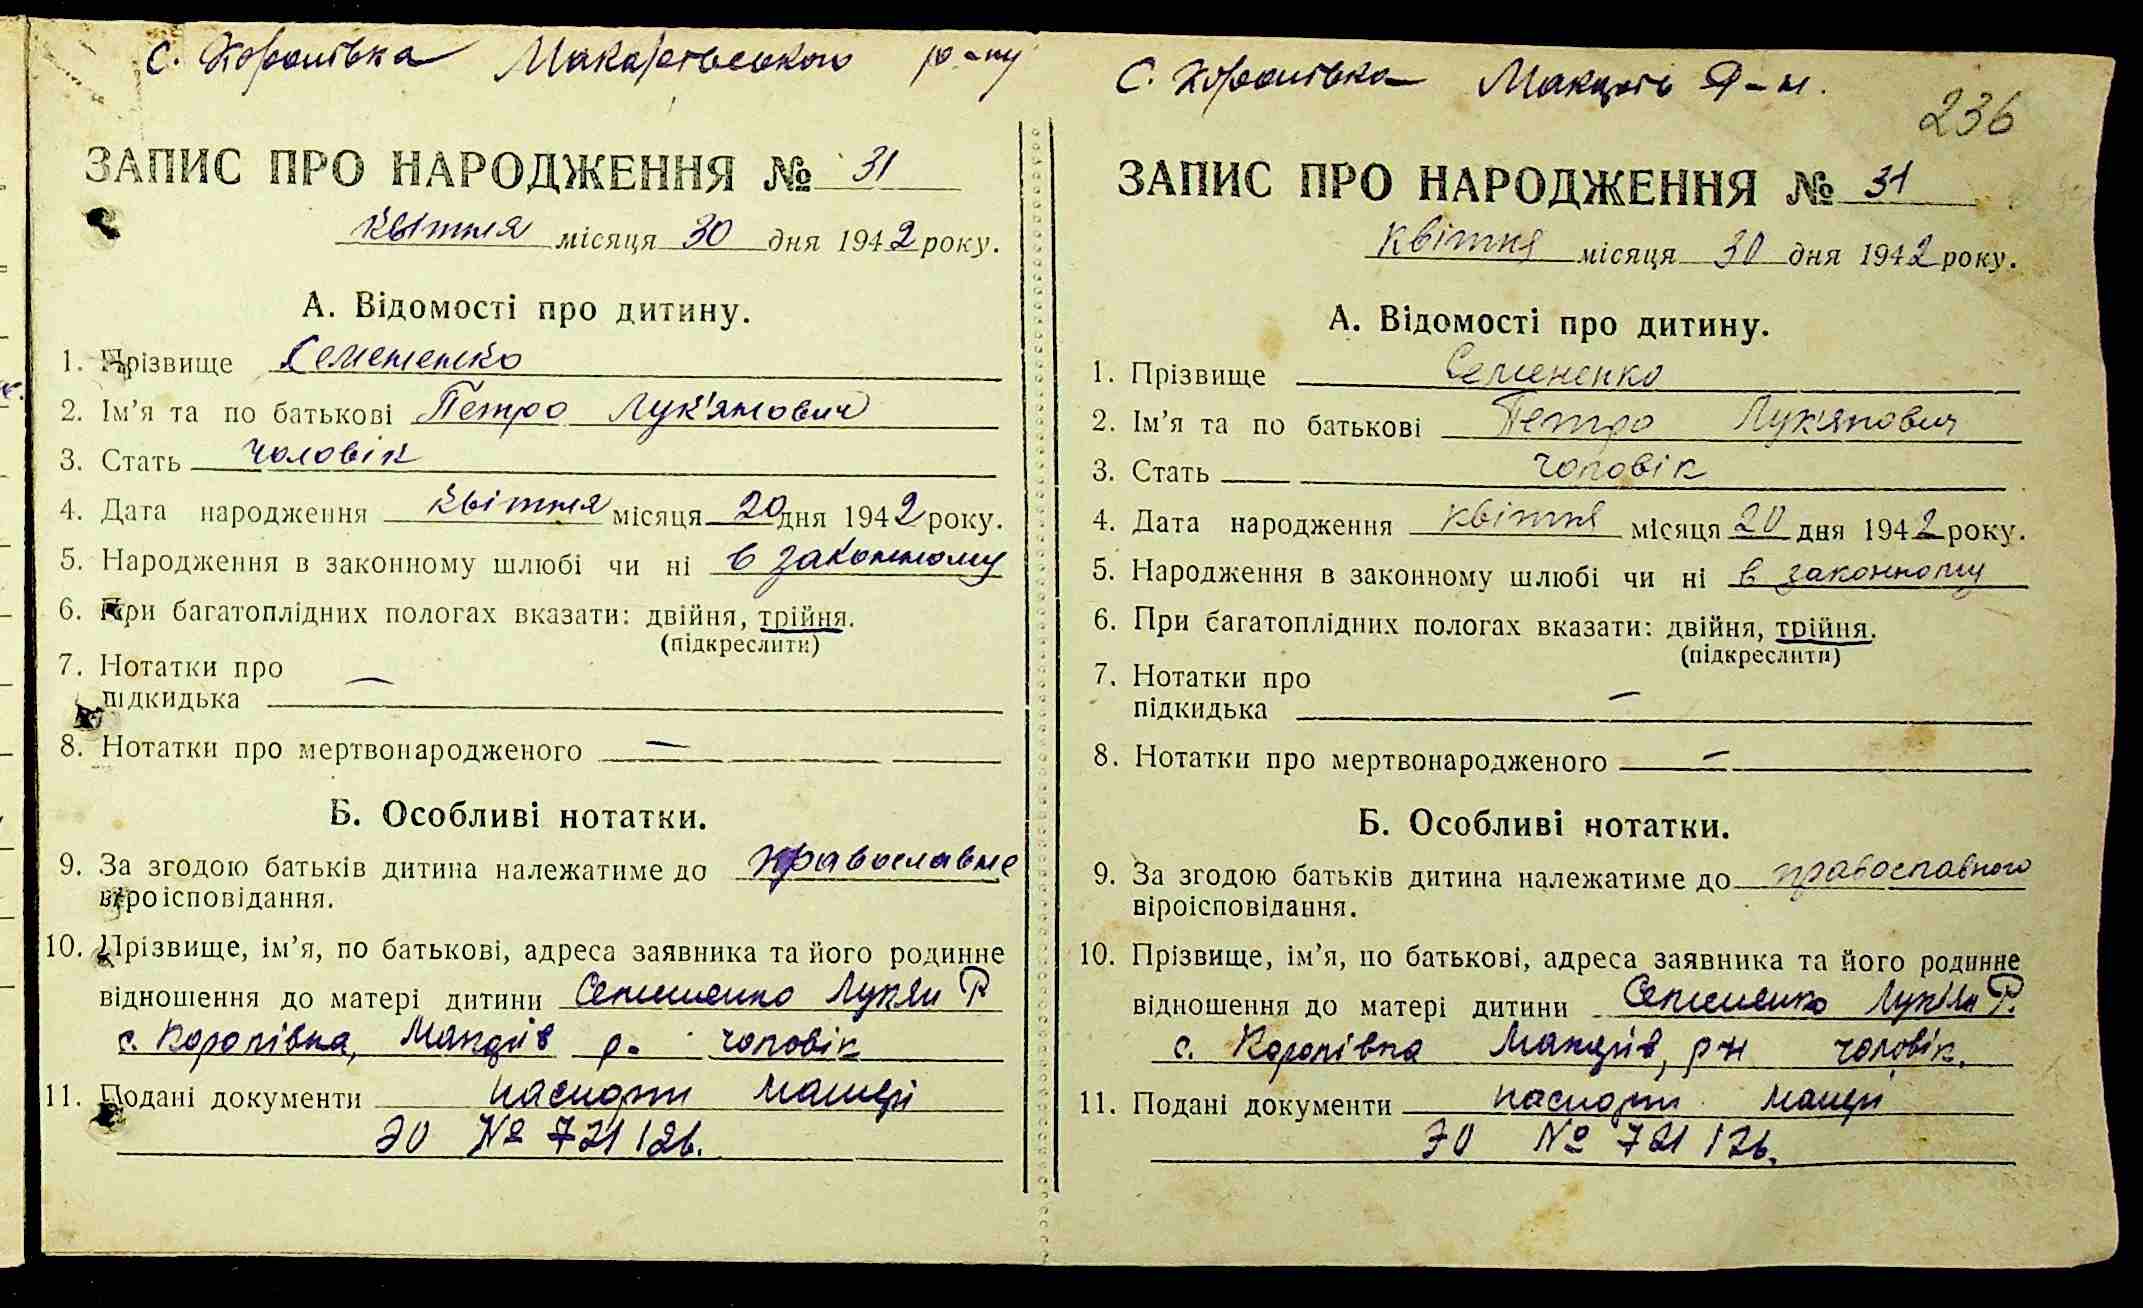 с. Королівка Макарівського р-ну
ЗАПИС ПРО НАРОДЖЕННЯ № 31
квітня місяця 30 дня 1942 року.
А. Відомості про дитину.
1. Прізвище Семененко
2. Ім'я та по батькові Петро Лук'янович
3. Стать чоловік
4. Дата народження квітня місяця 20 дня 1942 року.
5. Народження в законному шлюбі чи ні в законному
6. При багатоплідних пологах вказати: двійня, трійня.
(підкреслити)
7. Нотатки про
підкидька —
8. Нотатки про мертвонародженого —
Б. Особливі нотатки.
9. За згодою батьків дитина належатиме до православне
віроісповідання.
10. Прізвище, ім'я, по батькові, адреса заявника та його родинне
відношення до матері дитини Семененко Лукян Р
с. Королівка, Макарів р- чоловік
11. Подані документи паспорт матері
ЭО № 721126.
С. Королівка Макарів р-н.
236
ЗАПИС ПРО НАРОДЖЕННЯ № 31
квітня місяця 30 дня 1942 року.
А. Відомості про дитину.
1. Прізвище Семененко
2. Ім'я та по батькові Петро Лук'янович
3. Стать чоловік
4. Дата народження квітня місяця 20 дня 1942 року.
5. Народження в законному шлюбі чи ні в законному
6. При багатоплідних пологах вказати: двійня, трійня.
(підкреслити)
7. Нотатки про
підкидька —
8. Нотатки про мертвонародженого —
Б. Особливі нотатки.
9. За згодою батьків дитина належатиме до православного
віроісповідання.
10. Прізвище, ім'я, по батькові, адреса заявника та його родинне
відношення до матері дитини Семененко Лук'ян Р.
с. Королівка Макарів, р-н чоловік.
11. Подані документи паспорт матері
ЭО № 721126.